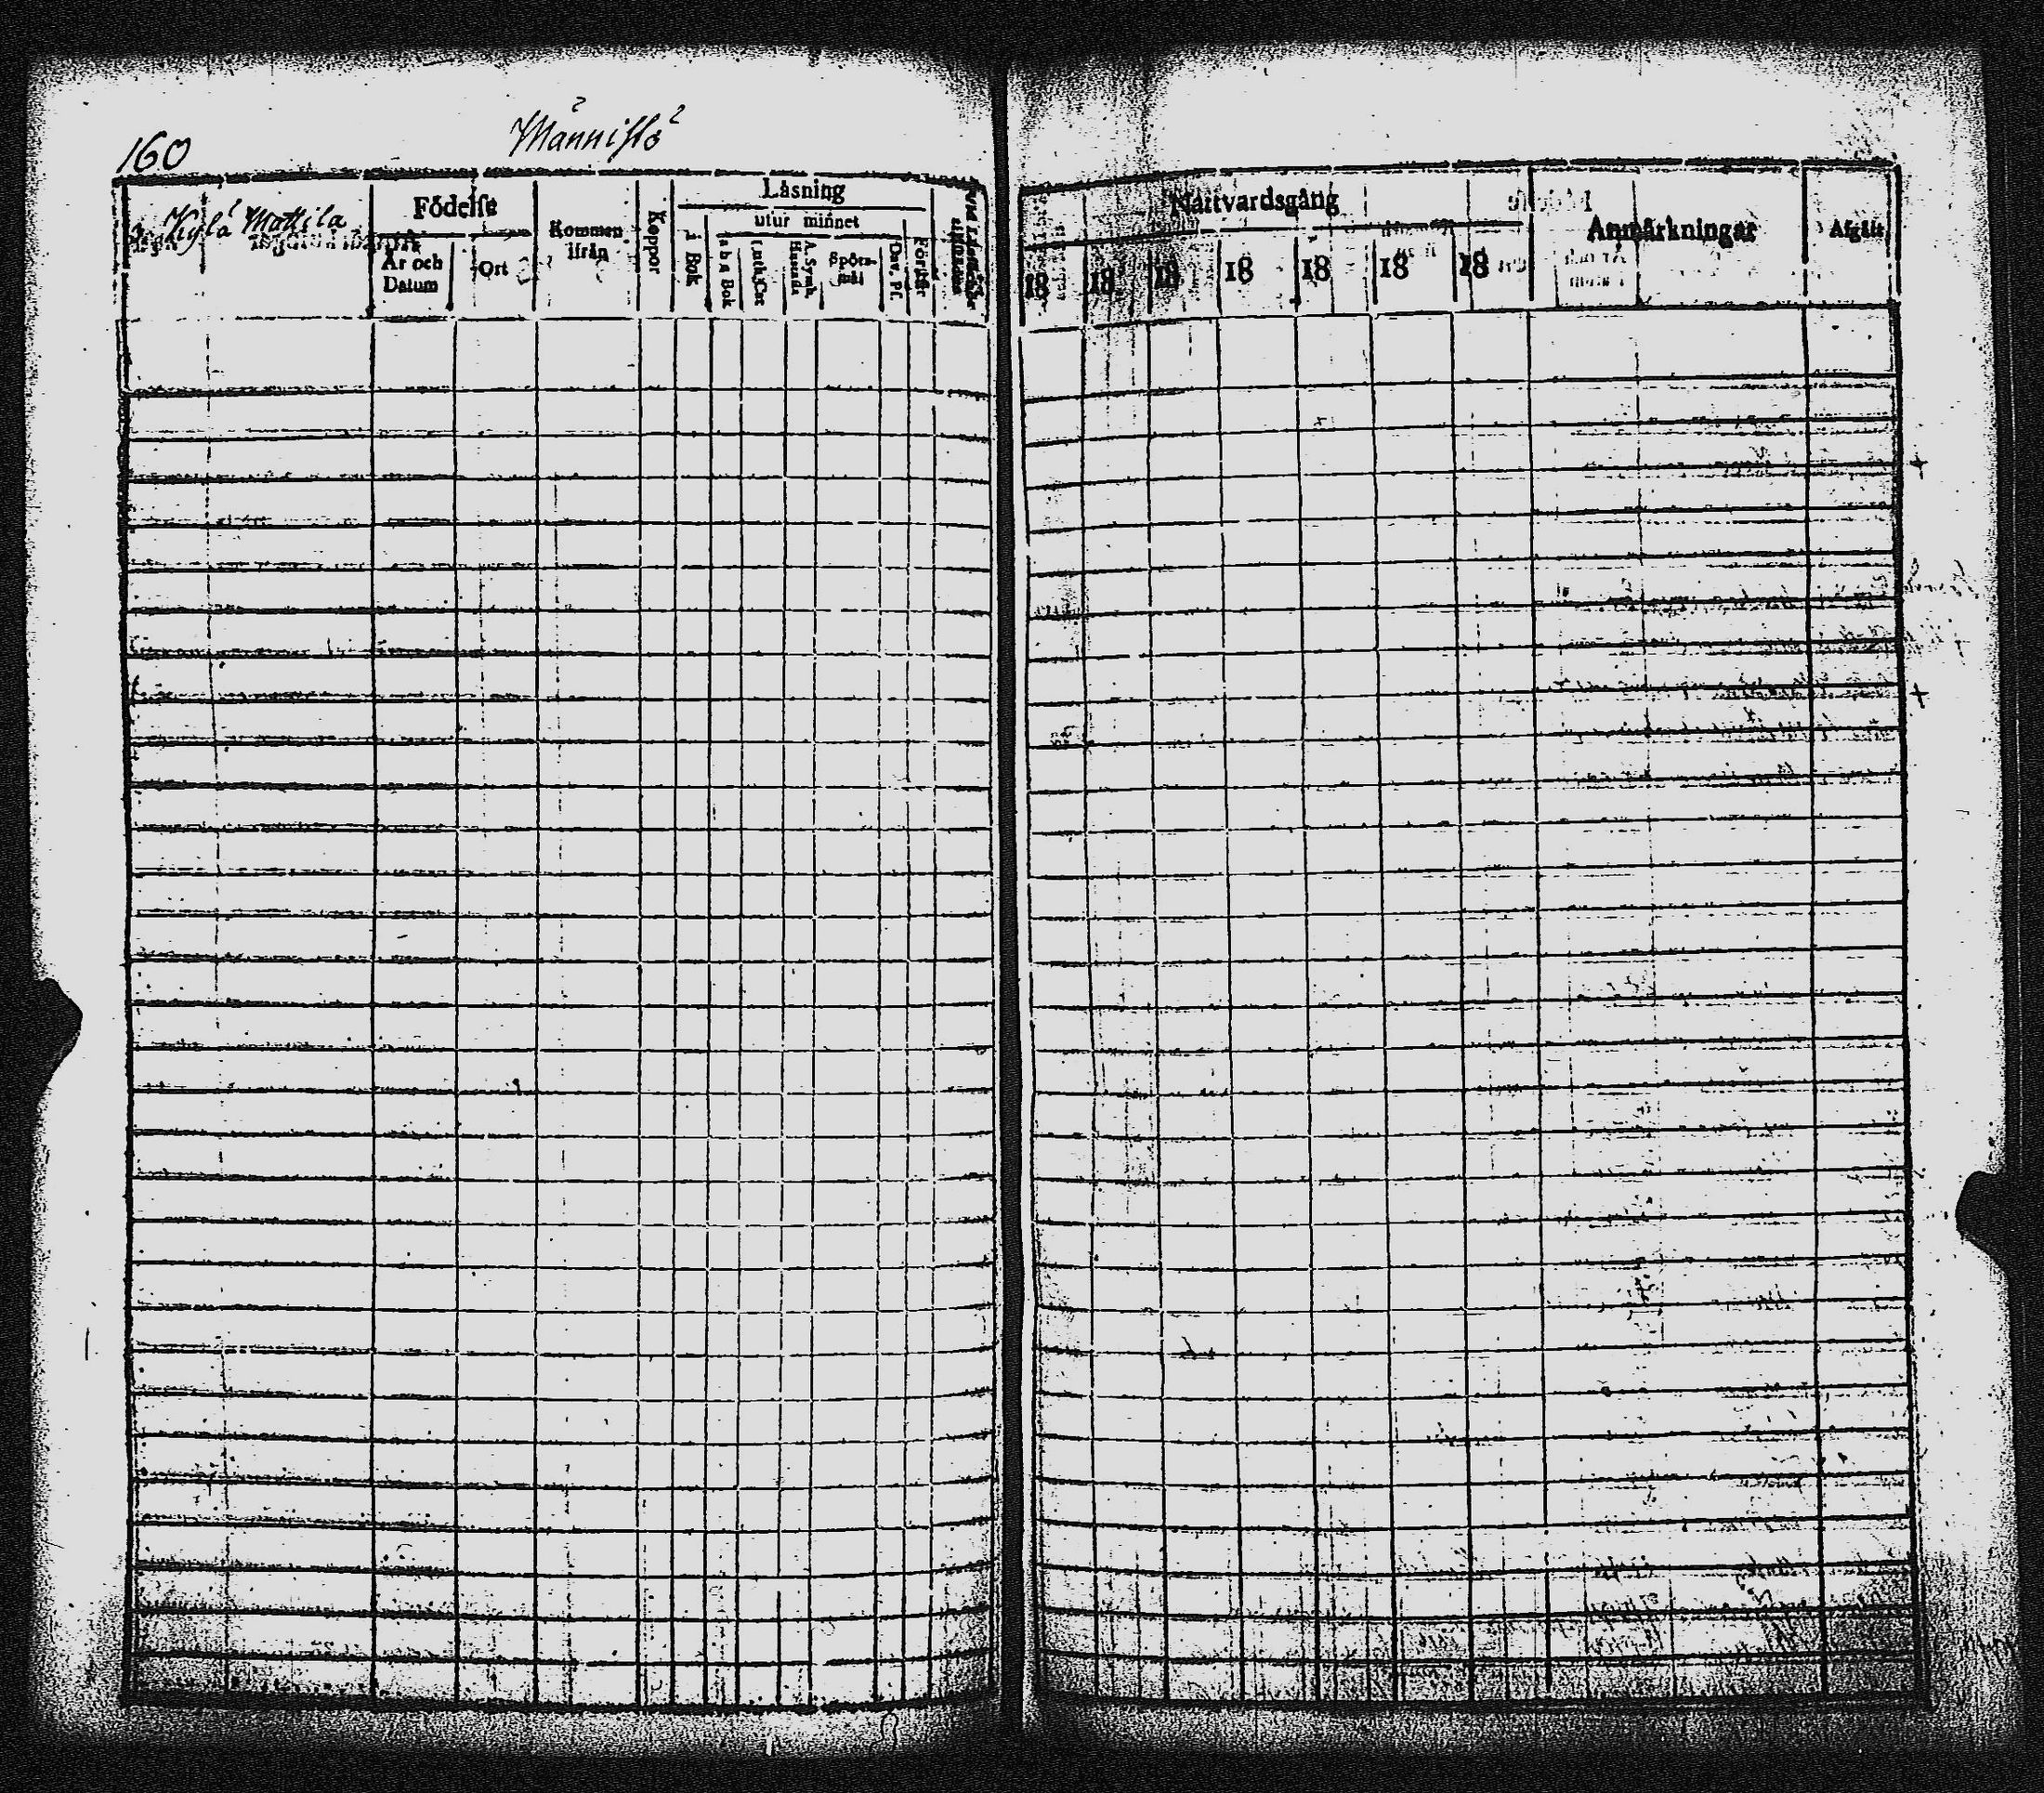 160
Männistö
Kylä Mattila
Födelse
År och Datum
Ort
Kommen ifrån
Koppor
Läsning
i Bok
utur minnet
a b c Bok
Luth. Cat
A. Symb. Hustafla
Spörs-mål
Dav. Ps.
Förstår
Nattvardsgång
18 18 18 18 18 18 18
Anmärkningar
Afgått